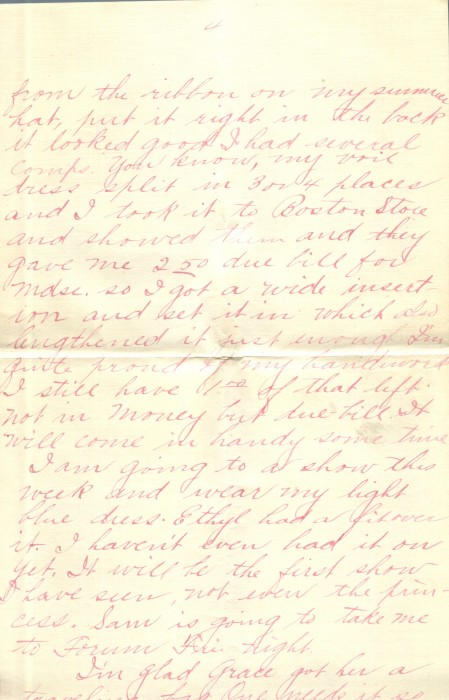 4
from the ribbon on my summer
hat, put it right in the back
it looked good I had several
comps. You know, my voile
dress split in 3 or 4 places
and I took it to Boston Store
and showed them and they
gave me 2 50 due bill for
Mdse. so I got a wide insert-
ion and set it in which also
lengthened it just enough I'm
quite proud of my handiwork
I still have of that left.
not in money but due-bill It
will come in handy some time
I am going to a show this
week and wear my light
blue dress. Ethyl had a fit over
it. I haven't even had it on
yet. It will be the first show
I have seen, not even the prin-
cess. Sam is going to take me
to Forum Fri. night.
I'm glad Grace got her a
traveling bag One needs it so